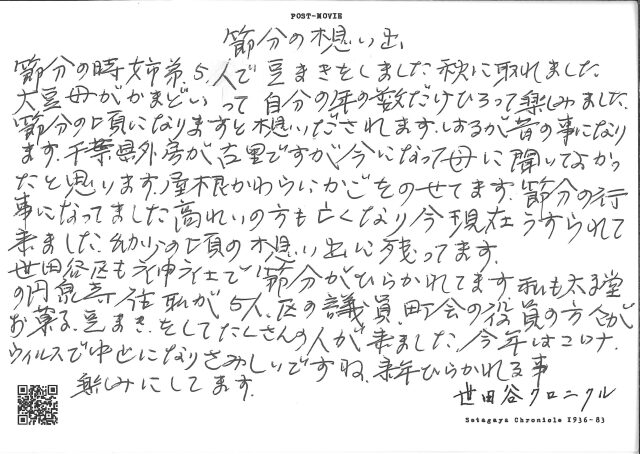 POST-MOVIE
節分の想い出
節分の時姉弟.5.人で豆まきをしました.秋に取れました
大豆母がかまどいって自分の年の数だけひろって楽しみました.
節分の頃になりますと想いだされます.はるが昔の事になり
ます.千葉県外房が古里ですが今になって母に聞いてよかっ
たと思います.屋根かわらいかごをのせてます.節分の行
事になってました高れいの方も亡くなり今現在うすられて
来ました.幼い頃の想い出に残ってます.
世田谷区も神社で節分がひらかれてます私も太子堂
の円泉寺 住私が5人.区の議員.町会の役員の方々が
お菓子.豆まき.をしてたくさんの人が来ました.今年はコロナ.
ウィルスで中止になりさみしいですね.来年ひらかれる事
楽しみにしてます.
世田谷クロニクル
Setagaya Chronicle 1936-83